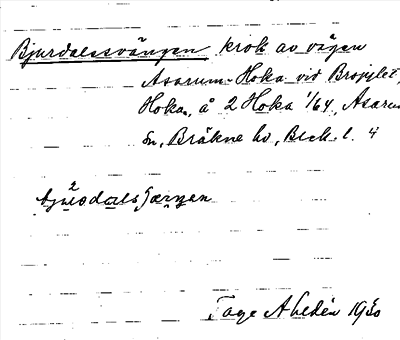 Bjurdalssvängen krok av vägen
Asarum-Hoka vid Brofylet,
Hoka, å 2 Hoka 1/64, Asarum
sn, Bräkne hd, Blek. l. 4
Tage Ahldén 1930